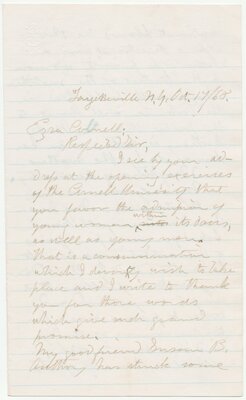 Fayetteville N.Y. Oct. 17/68.
Ezra Cornell;
Respected Sir,
I see by your ad-
dress at the opening exercises
of the Cornell University that
you favor the admission of
within
young women into its doors,
as well as young men.
That is a consummation
which I devoutly wish to take
place and I write to thank
you for those words
which give such grand
promise.
My good friend Susan B.
Anthony, has struck some